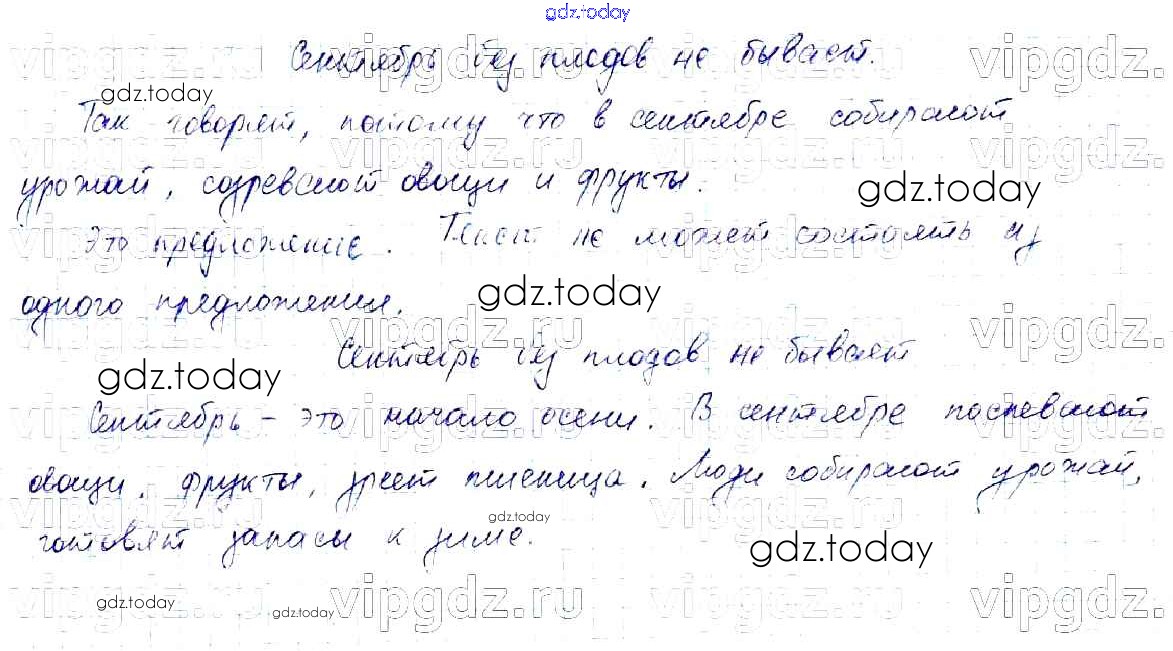 gdz.today
Сентябрь без плодов не бывает.
Так говорят, потому что в сентябре собирают
урожай, созревают овощи и фрукты.
Это предложение. Текст не может состоять из
одного предложения.
Сентябрь без плодов не бывает
Сентябрь – это начало осени. В сентябре поспевают
овощи, фрукты, зреет пшеница. Люди собирают урожай,
готовят запасы к зиме.
vipgdz.ru
gdz.today